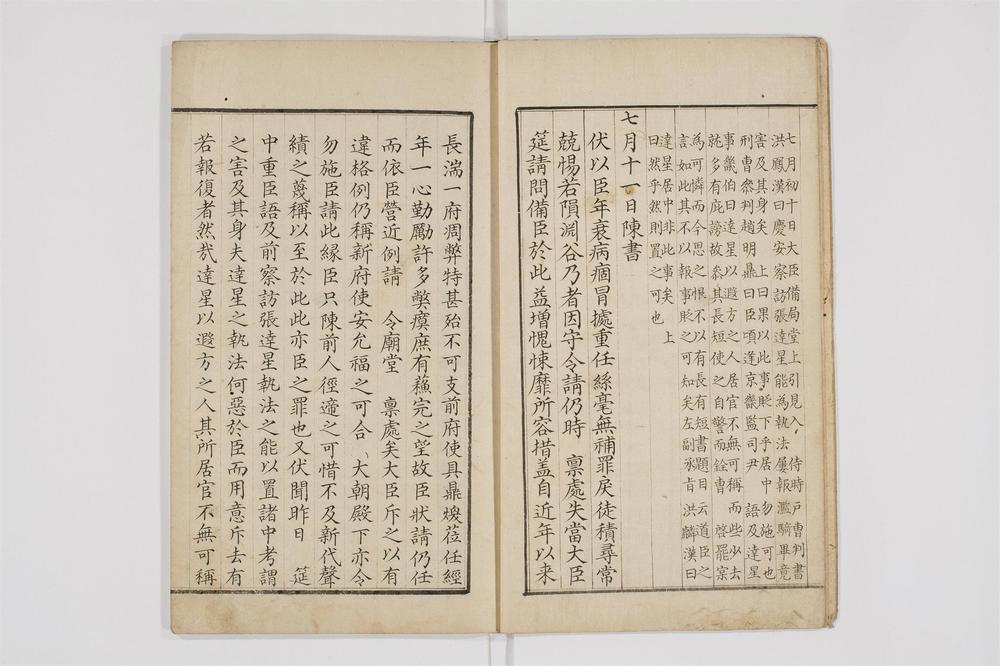 七月初十日大臣備局堂上引見入侍時戶曹判書
洪鳳漢曰慶安察訪張達星能為執法屢報濫騎畢竟
害及其身矣 上曰果以此事貶下乎居中勿施可也
刑曹參判趙明鼎曰臣頃逢京畿監司尹 語及達星
事畿伯曰達星以遐方之人居官不無可稱而些少去
就多有庇謗故姑其長短使之自警而銓曹 啓罷宲
為可憐而今思之恨不以有長有短書題目云道臣之
言如此其不以報事貶之可知矣左副承旨洪麟漢曰
達星居中非此事矣 上
曰然乎然則置之可也
七月十一日陳書
伏以臣年衰病痼冒據重任絲毫無補罪戾徒積尋常
兢惕若隕淵谷乃者因守令請仍時 稟處失當大臣
筵請問備臣於此益增愧悚靡所容措盖自近年以来
長湍一府凋弊特甚殆不可支前府使具鼎煥莅任經
年一心勤勵許多弊瘼庶有蘓完之望故臣狀請仍任
而依臣營近例請 令廟堂 稟處矣大臣斥之以有
違格例仍稱新府使安允福之可合大朝殿下亦令
勿施臣請此緣臣只陳前人徑遞之可惜不及新代聲
績之蔑稱以至於此此亦臣之罪也又伏聞昨日 筵
中重臣語及前察訪張達星執法之能以置諸中考謂
之害及其身夫達星之執法何惡於臣而用意斥去有
若報復者然㢤達星以遐方之人其所居官不無可稱